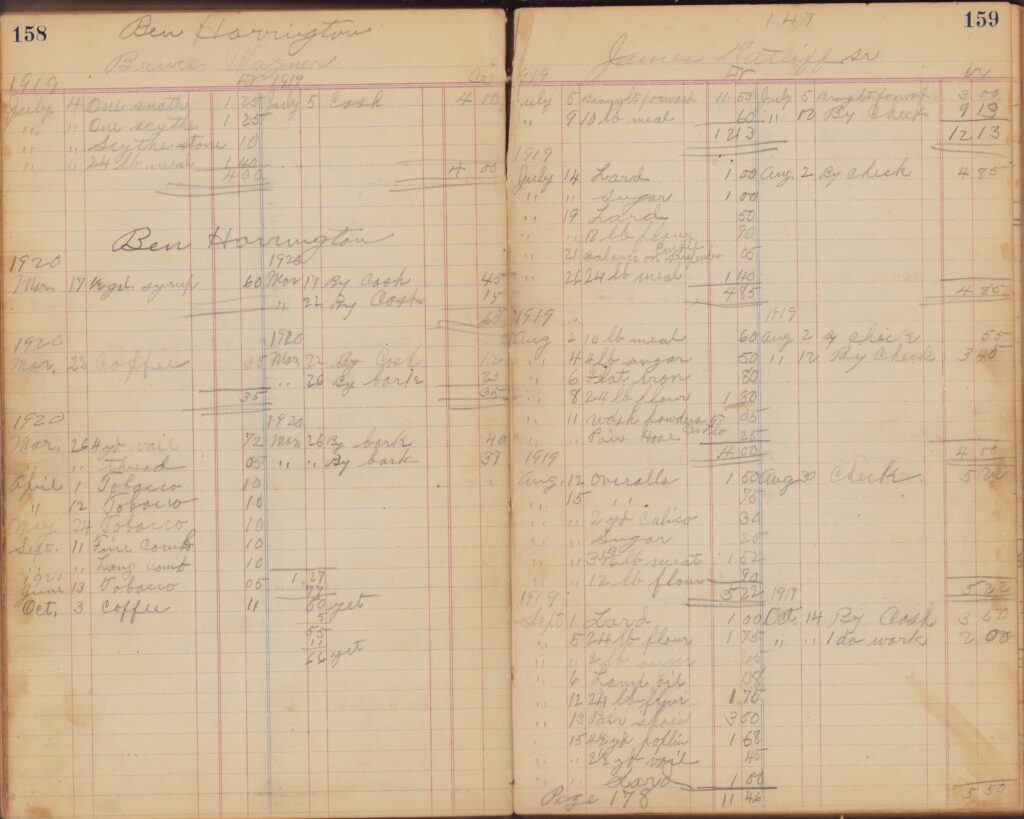 158
Ben Harrington
Bruce Wagner
1919 Dr 1919 Cr
July 4 One snath 1 25 July 5 Cash 4 00
" " One scythe 1 25
" " Scythe stone 10
" " 24 lb meal 1 40
4 00 4 00
Ben Harrington
1920 1920
Mar. 17 gal. syrup 60 Mar 17 By Cash 45
" 22 By Cash 15
60
1920 1920
Mar. 23 Coffee 35 Mar. 22 By Cash
" 26 By bark
35 35
1920 1920
Mar. 26 4 yd vail 72 Mar. 26 By bark 40
" " thread 05 " " By bark 39
April 1 Tobacco 10
" 12 Tobacco 10
May 24 Tobacco 10
Sept. 11 Fine Comb 10
" " Long comb 10
1921 1.27
June 13 Tobacco 05 77
Oct. 3 Coffee 11 50 yet
5
55
11
66 yet
147
159
James Ratliff sr
1919 Dr Cr
July 5 Brought forward 11 53 July 5 Brought forward 3 00
" 9 10 lb meal 60 " 12 By Check 9 13
12 13 12 13
1919
July 14 Lard 1 00 Aug. 2 By Check 4 85
" " Sugar 1 00
" 19 Lard 50
" " 12 lb flour 90
" 21 Balance on 05
" 26 24 lb meal 1 40
4 85 4 85
1919 1919
Aug 2 10 lb meal 60 Aug 2 By Check 55
" 4 4 lb sugar 50 " 12 By Check 3 40
" 6 Flat iron 80
" 8 24 lb flour 1 80
" 11 Wash powders 05
" " Pair Hose 25
4 00 4 00
1919
Aug. 12 Overalls 1 50 Aug 30 Check 5 22
" 15 " 75
" " 2 yd Calico 30
" " Sugar 25
" " lb meat 1 52
" " 12 lb flour 90
1919 5 22 1919 5 22
Sept 1 Lard 1 00 Oct. 14 By Cash 3 50
" 5 24 lb flour 1 75 " " 1 da work 2 00
" " 2 lb sugar
" 6 Lamp oil 08
" 12 24 lb flour 1 75
" 13 Pair shoes 3 50
" 15 4 1/2 yd poplin 1 68
" " 2 1/2 yd vail 45
" " Lard 1 00
Page 178 11 46 5 50